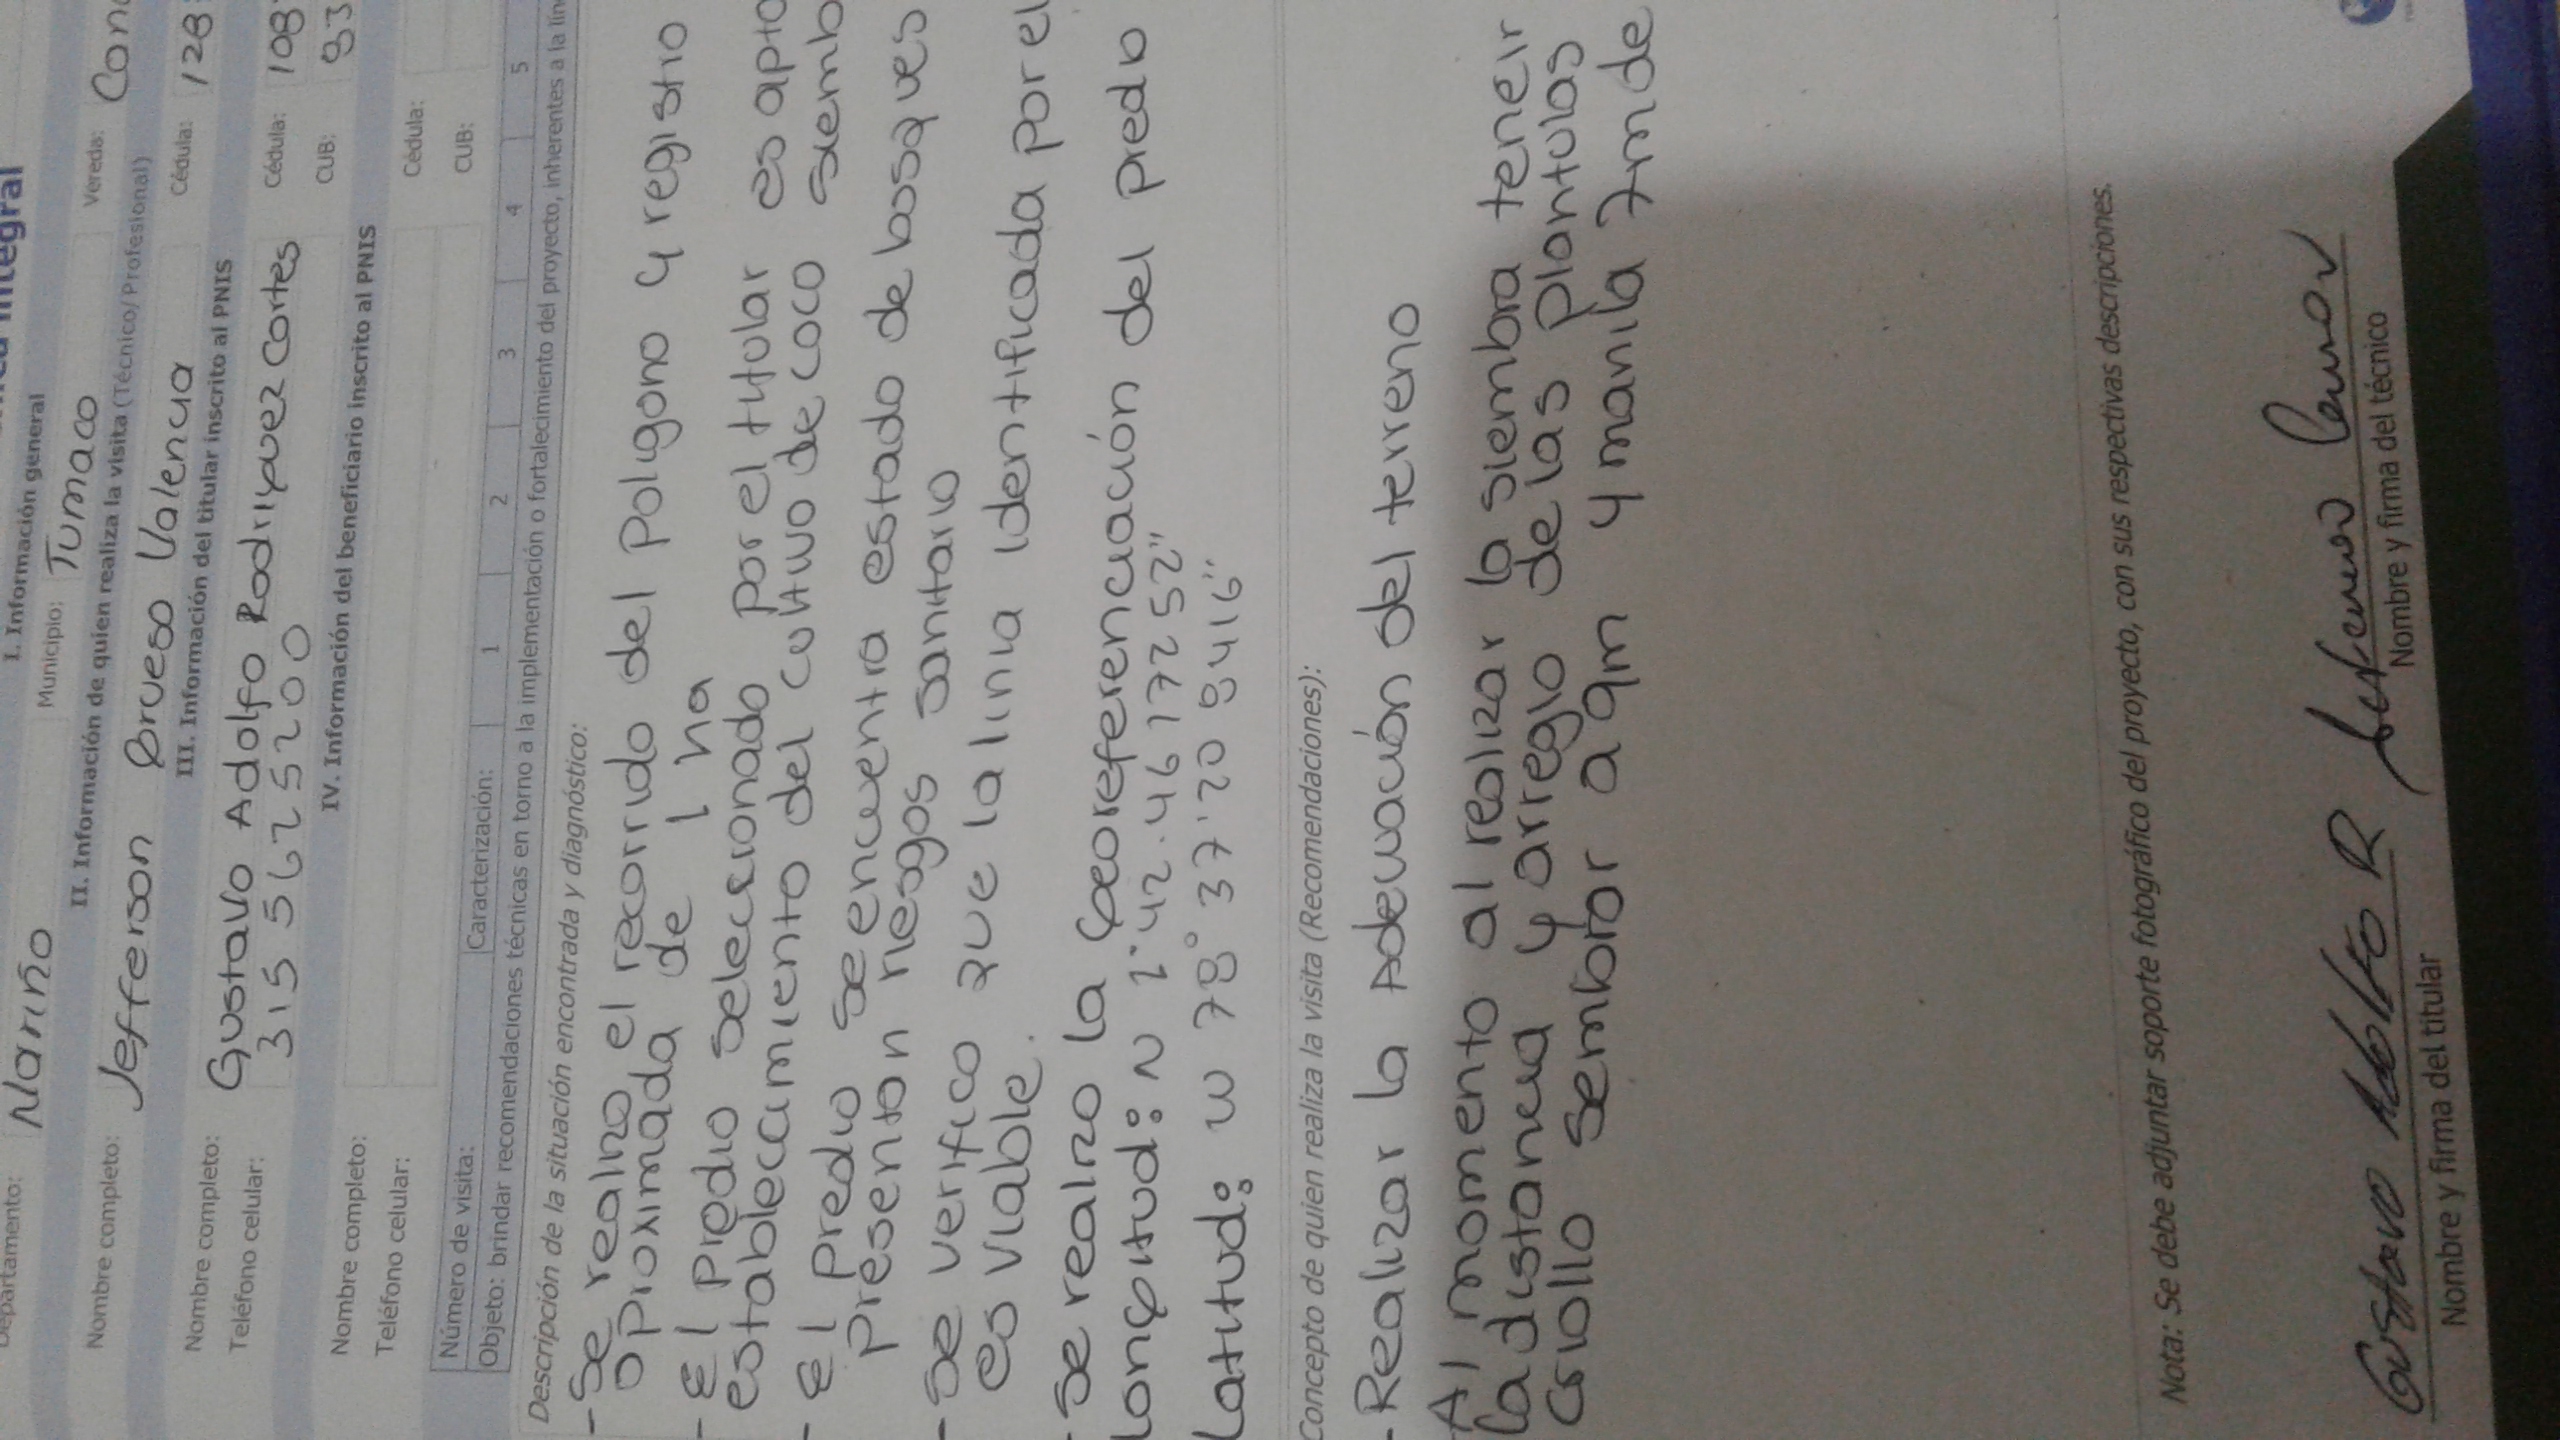 I. Información general
Departamento: Nariño Municipio: Tumaco Vereda:
II. Información de quien realiza la visita (Técnico/Profesional)
Nombre completo: Jefferson Brueso Valencia Cédula: 128
III. Información del titular inscrito al PNIS
Nombre completo: Gustavo Adolfo Rodriguez Cortes Cédula: 108
Teléfono celular: 315 5625200 CUB: 83
IV. Información del beneficiario inscrito al PNIS
Nombre completo: Cédula:
Teléfono celular: CUB:
Número de visita: Caracterización: 1 2 3 4 5
Objeto: brindar recomendaciones técnicas en torno a la implementación o fortalecimiento del proyecto, inherentes a la
Descripción de la situación encontrada y diagnóstico:
- Se realizo el recorrido del Poligono y registro
aproximada de 1 ha
- El Predio seleccionado por el titular es apto
establecimiento del cultivo de coco siemb
- El Predio se encuentra estado de bosques
Presentan riesgos sanitario
- Se verifico que la linia identificada por el
es viable.
- Se realizo la georeferenciación del predio
Longitud: N 1°42.4617252"
Latitud: W 78° 37'20 8416"
Concepto de quien realiza la visita (Recomendaciones):
- Realizar la Adecuación del terreno
Al momento al realizar la siembra tener
la distancia y arreglo de las Plantulas
Criollo sembrar a 9m y manila 7m de
Nota: Se debe adjuntar soporte fotográfico del proyecto, con sus respectivas descripciones.
Gustavo Adolfo R
Nombre y firma del titular Nombre y firma del técnico